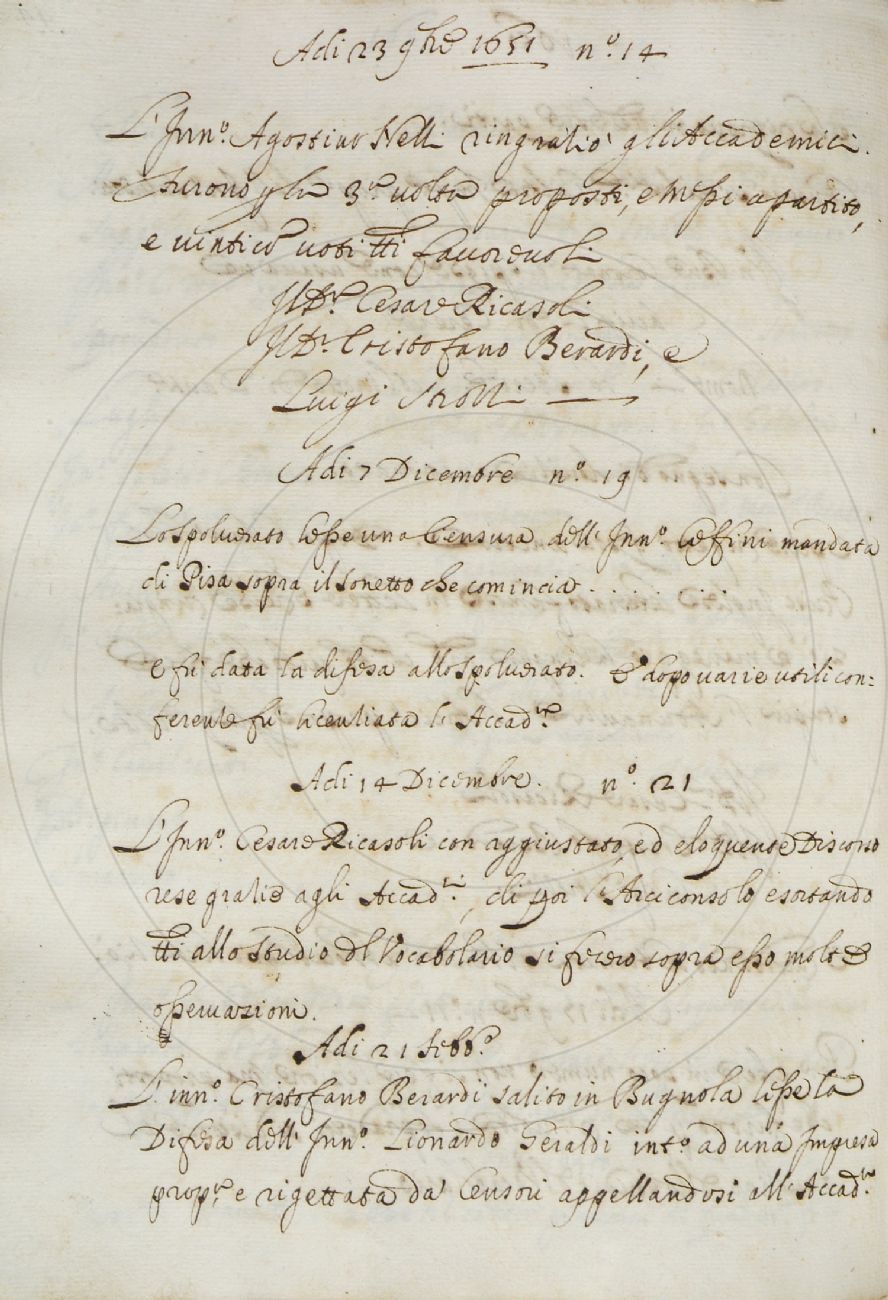 Adi 23 9bre 1651 nº. 14
L'Innº. Agostino Nelli ringraziò gli Accademici.
Furono p la 3ª volta proposti, e messi a partito,
e vinti co' voti tti favorevoli
Il Drᵉ. Cesare Ricasoli
Il Drᵉ Cristofano Berardi, e
Luigi Strozzi
Adi 7 Dicembre nº. 19
Lo Spolverato lesse una Censura dell' Innº. Ceffini mandata
di Pisa sopra il sonetto che comincia . . . . . .
e fù data la difesa allo Spolverato. E dopo varie utili con=
ferenze fù licenziata l' Accadᵉ.
Adi 14 Dicembre. nº. 21
L'Innº. Cesare Ricasoli con aggiustato, ed eloquente Discorso
rese grazie agli Accadᶜⁱ., di poi l'Arciconsolo esortando
tti allo studio dl Vocabolario si fecero sopra esso molte
osservazioni.
Adi 21 Febbº.
L' innº. Cristofano Berardi salito in Bugnola lesse la
Difesa dell' Innº. Lionardo Geraldi intº. ad una Impresa
propᵃ. e rigettata da' Censori appellandosi all' Accadᵃ.